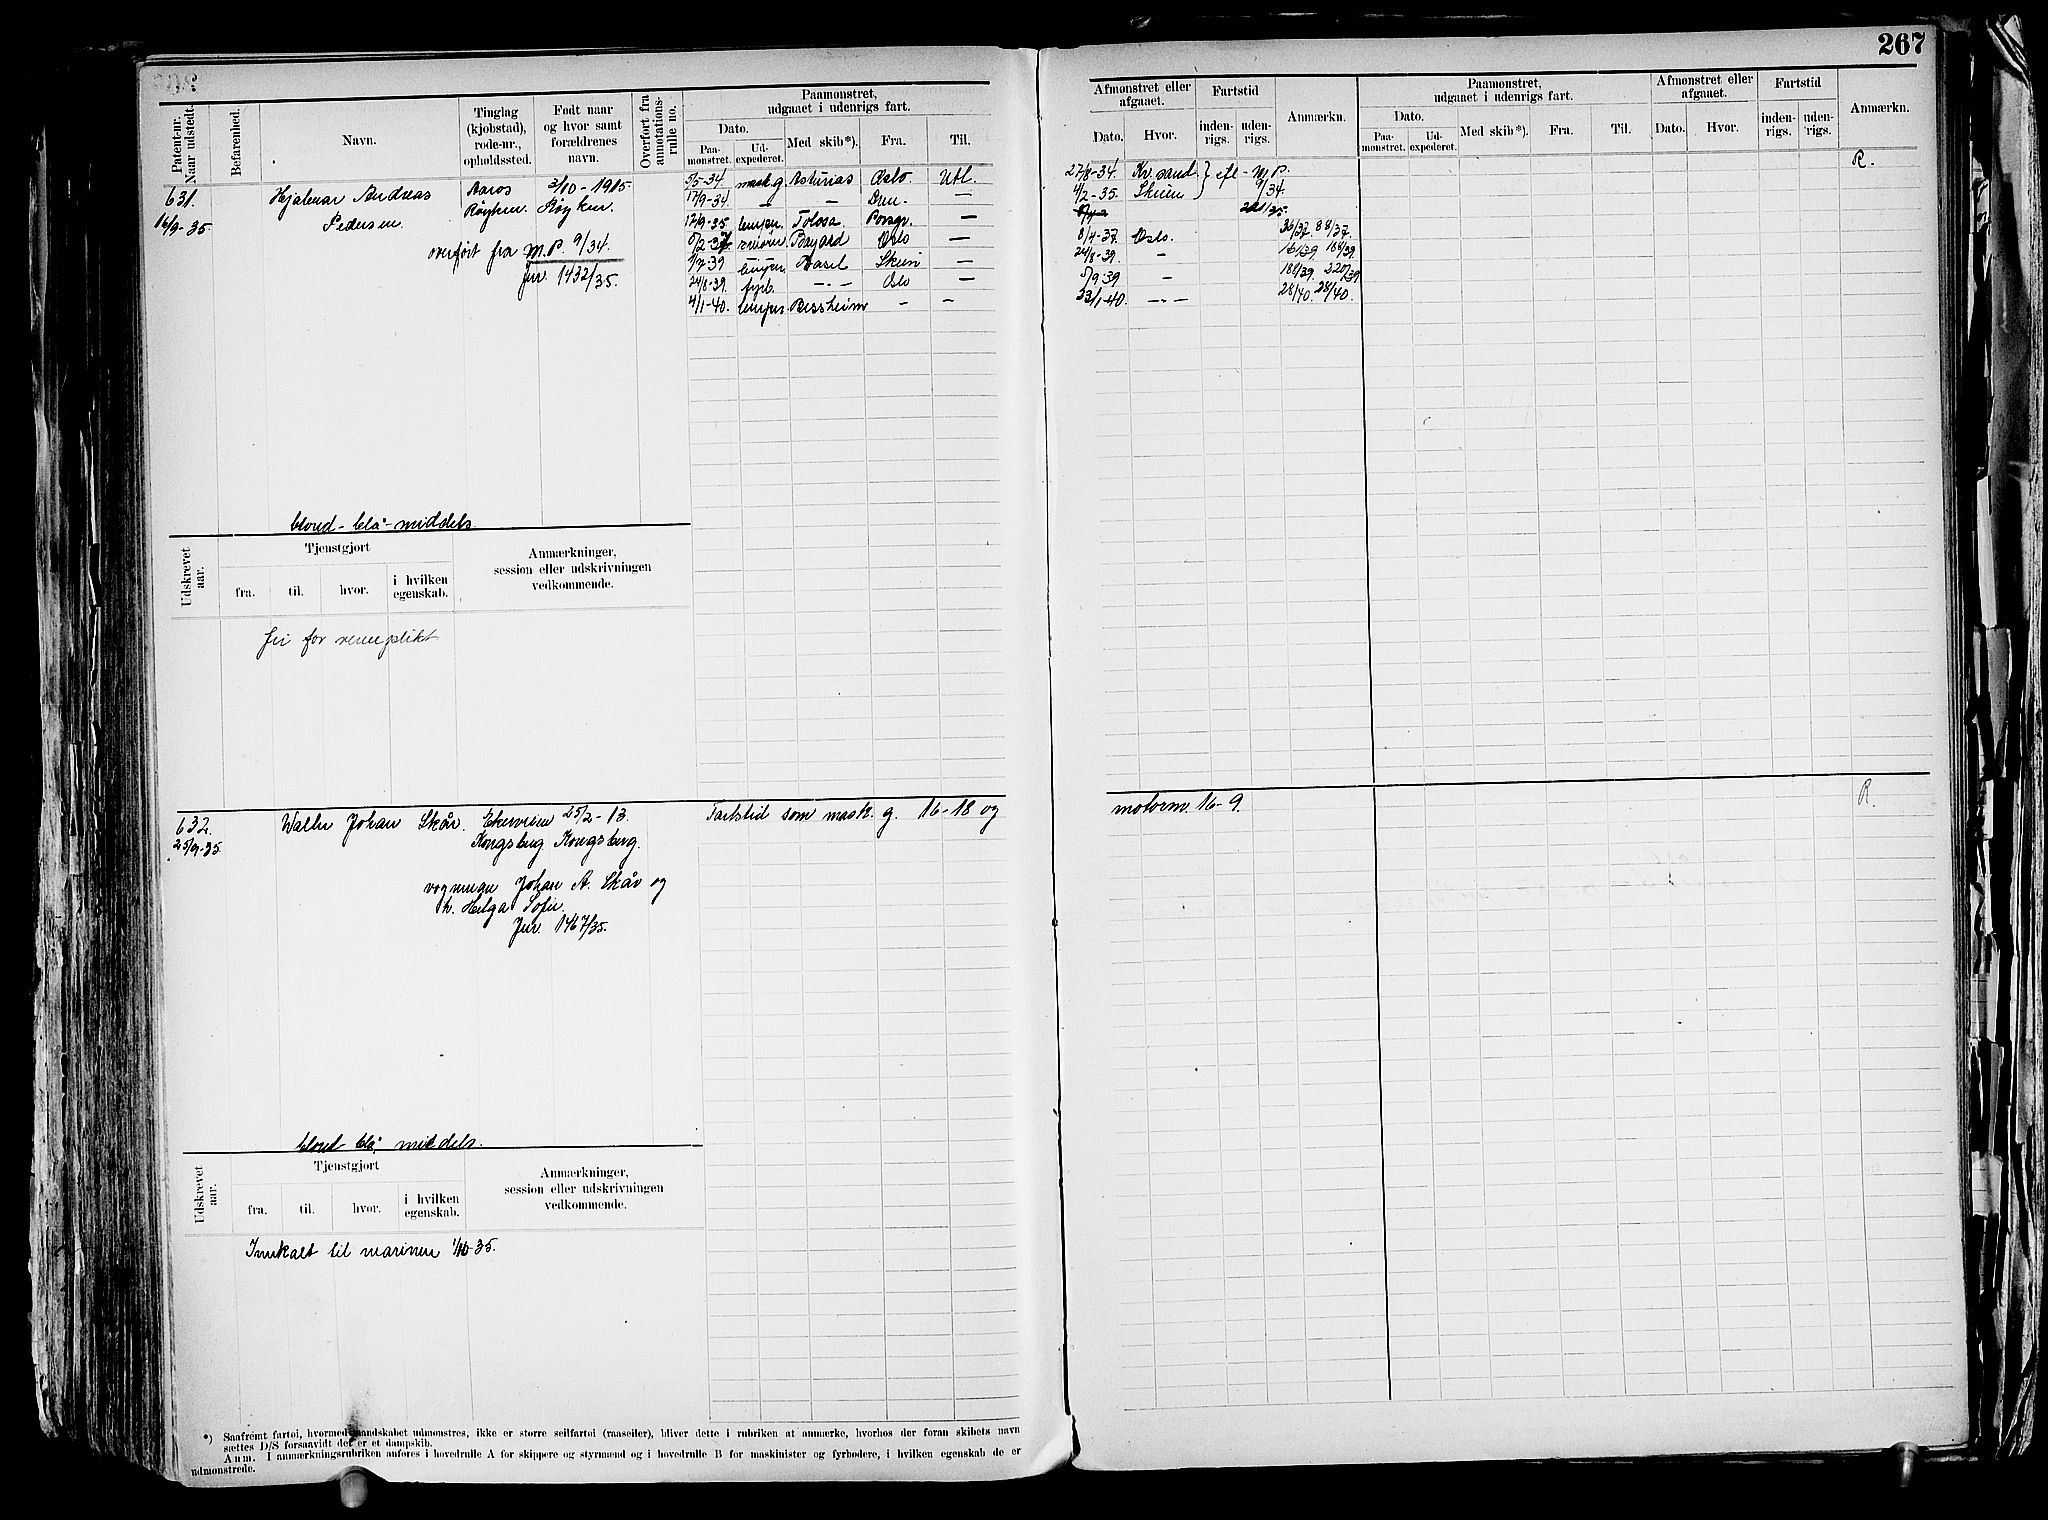 267
Patent-nr. Naar udstedt.
Befarenhed.
Navn.
Tinglag (kjøbstad), rode-nr., opholdssted.
Født naar og hvor samt forældrenes navn.
Overført fra annotations-rulle no.
Paamønstret, udgaaet i udenrigs fart.
Dato.
Paa-mønstret.
Ud-expederet.
Med skib*).
Fra.
Til.
Afmønstret eller afgaaet.
Dato.
Hvor.
Fartstid
inden-rigs.
uden-rigs.
Anmærkn.
Paamønstret, udgaaet i udenrigs fart.
Dato.
Paa-mønstret.
Ud-expederet.
Med skib*).
Fra.
Til.
Afmønstret eller afgaaet.
Dato.
Hvor.
Fartstid
inden-rigs.
uden-rigs.
Anmærkn.
631. Hjalmar Andreas Aaros 3/10-1915
16/9-35 Pedersen Røyken. Røyken.
overført fra M.P 9/34.
Jnr. 1432/35.
5/5-34 mask.g. Asturias Oslo Utl. 27/8-34. Kr.sand } M.P. R.
17/9-34. — — Dmn. — 4/2-35. Skien 9/34
17/9-35 Tolosa Porsgr. —
5/2-37 Oslo — 8/4-37. Oslo. 36/37. 88/37.
1/7-39 Basel Skien — 24/8-39. — 161/39. 188/39.
24/8-39. fyrb. —„— Oslo — 5/9-39 — 188/39. 220/39
4/1-40. Bessheim — — 23/1-40. —„— 28/40. 28/40.
blond - blå - middels.
Udskrevet aar.
Tjenstgjort
fra.
til.
hvor.
i hvilken egenskab.
Anmærkninger, session eller udskrivningen vedkommende.
fri for verneplikt
632. Johan Skår. 25/2-13. Fartstid som mask. g. 16-18 og motorm 16-9. R.
25/9-35. Kongsberg. Kongsberg.
Johan A. Skår og
h. Helga Sofie.
Jnr. 1467/35.
blond blå, middels.
Udskrevet aar.
Tjenstgjort
fra.
til.
hvor.
i hvilken egenskab.
Anmærkninger, session eller udskrivningen vedkommende.
Innkalt til marinen 1/10-35.
*) Saafremt fartøi, hvormed mandskabet udmønstres, ikke er større seilfartøi (raaseiler), bliver dette i rubriken at anmærke, hvorhos der foran skibets navn
sættes D/S forsaavidt det er et dampskib.
Anm. I anmærkningsrubriken anføres i hovedrulle A for skippere og styrmænd og i hovedrulle B for maskinister og fyrbødere, i hvilken egenskab de er
udmønstrede.